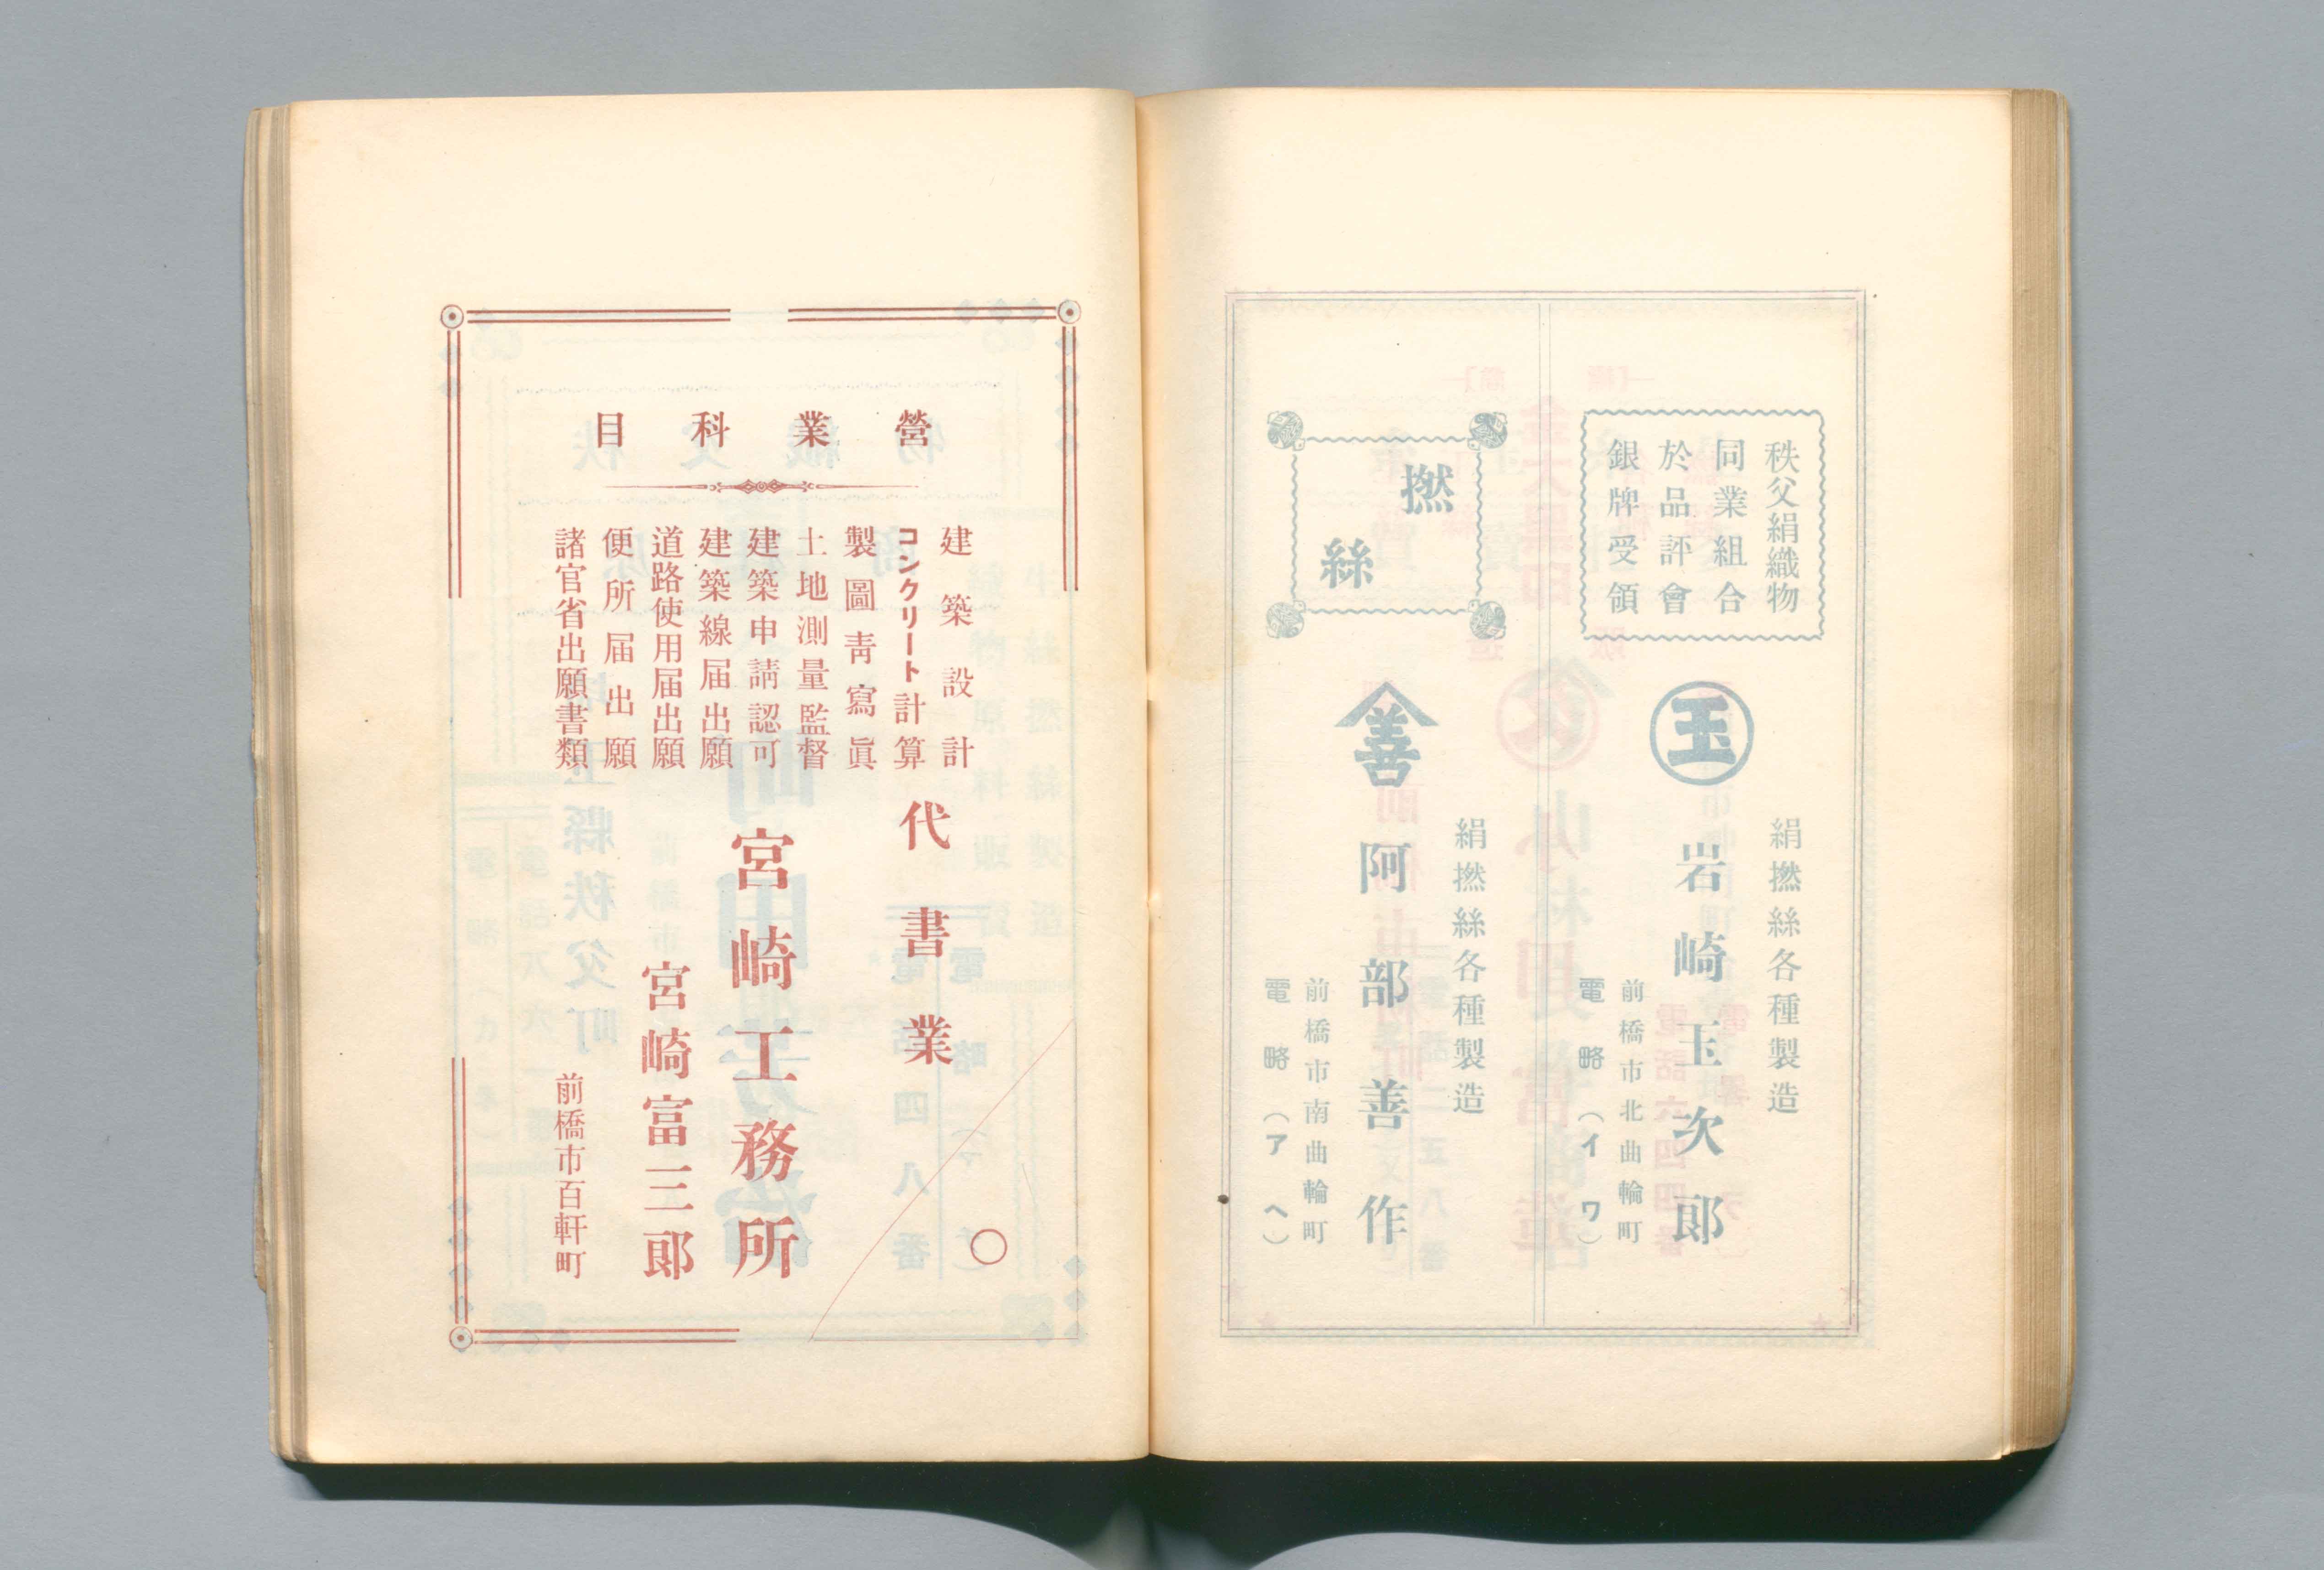 秩父絹織物
同業組合
於品評會
銀牌受領
玉
絹撚絲各種製造
岩崎玉次郎
前橋市北曲輪町
電略（イワ）
撚絲
善
絹撚絲各種製造
阿部善作
前橋市南曲輪町
電略（アヘ）
營業科目
建築設計
コンクリート計算
製圖靑寫眞
土地測量監督
建築申請認可
建築線届出願
道路使用届出願
便所届出願
諸官省出願書類
代書業
宮崎工務所
宮崎富三郎
前橋市百軒町